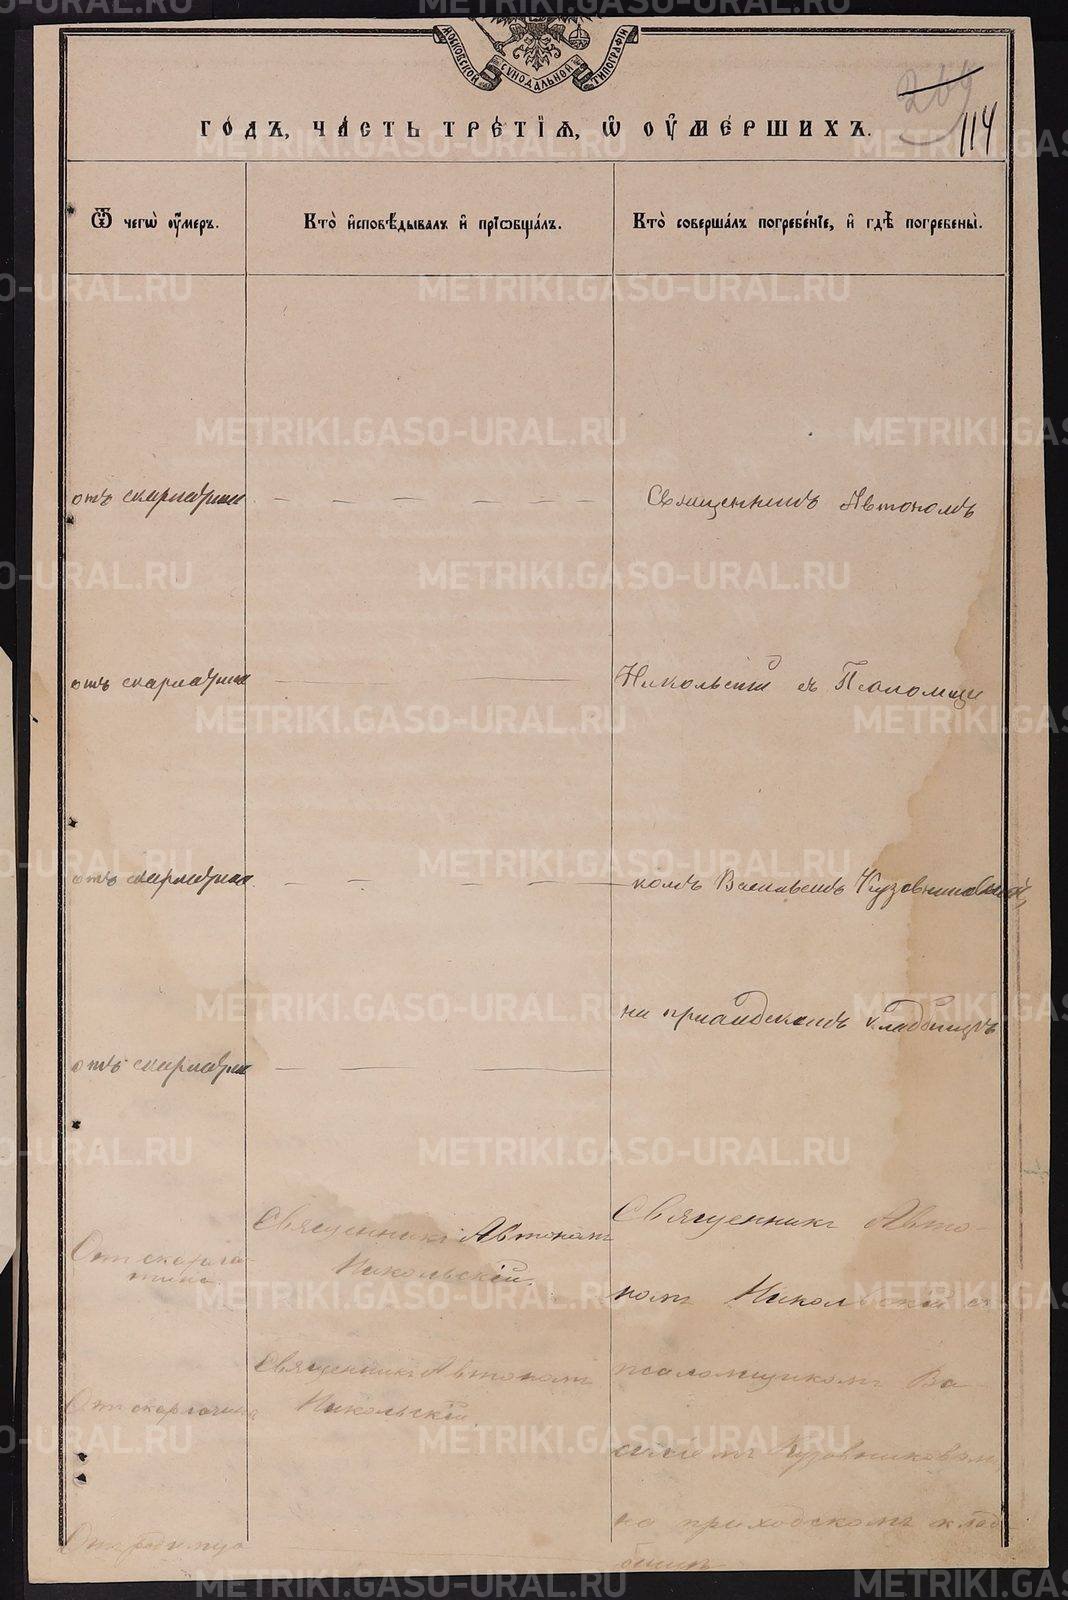 МОСКОВСКОЙ СѴНОДАЛЬНОЙ ТИПОГРАФІИ
264
114
ГО́ДЪ, ЧА́СТЬ ТРЕ́ТІѦ, Ѡ҆ ОУ҆МЕ́РШИХЪ.
Ѿ чегѡ̀ оу҆́меръ.
Кто̀ и҆сповѣ́дывалъ и҆ прїѡбща́лъ.
Кто̀ соверша́лъ погребе́нїе, и҆ гдѣ̀ погребены̀.
отъ скарлатины
Священникъ Автономъ
отъ скарлатины
Никольскій съ Псаломщи
отъ скарлатины
комъ Васильемъ Кузовниковымъ,
на приходскомъ кладбищѣ
отъ скарлатины
Отъ скарла-
тины.
Священникъ Автономъ
Никольскій.
Священникъ Авто-
номъ Никольскій съ
Отъ скарлатины
Священникъ Автономъ
Никольскій.
псаломщикомъ Ва-
силіемъ Кузовниковымъ,
на приходскомъ клад-
бищѣ
Отъ родимца
METRIKI.GASO-URAL.RU